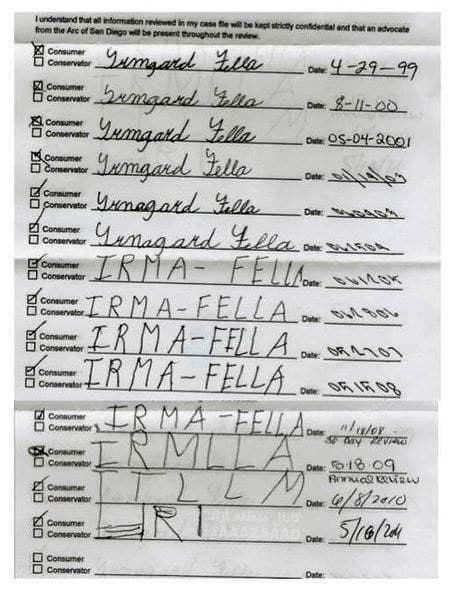 I understand that all information reviewed in my case file will be kept strictly confidential and that an advocate
from the Arc of San Diego will be present throughout the review.
Consumer
Conservator Irmgard Fella Date: 4-29-99
Consumer
Conservator Irmgard Fella Date: 8-11-00
Consumer
Conservator Irmgard Fella Date: 05-04-2001
Consumer
Conservator Irmgard Fella Date:
Consumer
Conservator Irmagard Fella Date:
Consumer
Conservator Irmagard Fella Date:
Consumer
Conservator IRMA- FELLA Date:
Consumer
Conservator IRMA-FELLA Date:
Consumer
Conservator IRMA-FELLA Date:
Consumer
Conservator IRMA-FELLA Date: 051508
Consumer
Conservator IRMA-FELLA Date: 11/18/08
30 DAY REVIEW
Consumer
Conservator IRMLLA Date: 5-18 09
Annual Review
Consumer
Conservator ITLLM Date: 6/8/2010
Consumer
Conservator Date: 5/16/201
Consumer
Conservator Date: